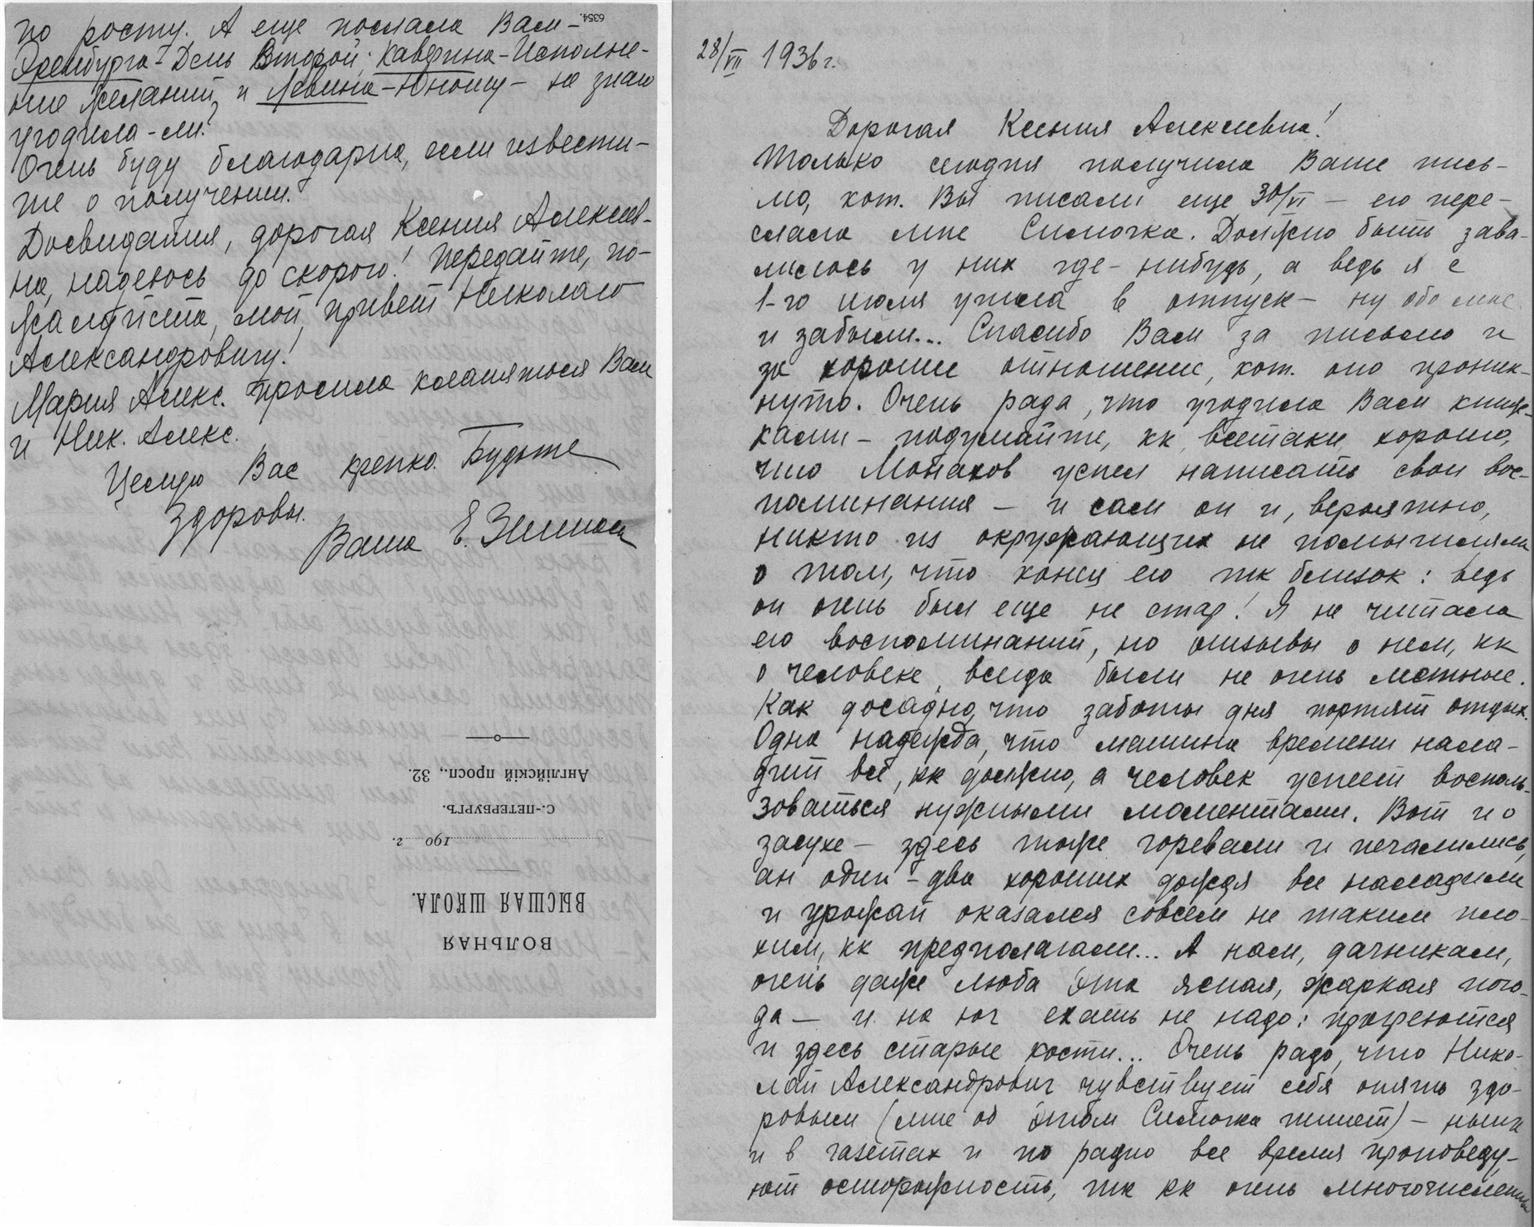 по росту. А еще послала Вам –
Эренбурга – День Второй. Каверина – Исполне-
ние желаний, и Левина – Юношу – не знаю
угодила-ли?
Очень буду благодарна, если извести-
те о получении.
Досвидания, дорогая Ксения Алексеев-
на, надеюсь до скорого! Передайте, по-
жалуйста, мой привет Николаю
Александровичу!
Мария Алекс. просила кланяться Вам
и Ник. Алекс.
Целую Вас крепко. Будьте
здоровы.
Ваша Е.
6354.
ВОЛЬНАЯ
ВЫСШАЯ ШКОЛА.
190 г.
С.-ПЕТЕРБУРГЪ.
Англійскій просп., 32.
28/VII 1936 г.
Дорогая Ксения Алексеевна!
Только сегодня получила Ваше пись-
мо, кот. Вы писали еще 30/VI – его пере-
слала мне Симочка. Должно быть зава-
лилось у них где-нибудь, а ведь я с
1-го июля ушла в отпуск – ну обо мне
и забыли... Спасибо Вам за письмо и
за хорошее отношение, кот. оно проник-
нуто. Очень рада, что угодила Вам книж-
ками – подумайте, кк всетаки хорошо,
что Монахов успел написать свои вос-
поминания – и сам он и, вероятно,
никто из окружающих не помышляли
о том, что конец его тк близок: ведь
он очень был еще не стар! Я не читала
его воспоминаний, но отзывы о нем, кк
о человеке, всегда были не очень лестные.
Как досадно, что заботы дня портят отдых.
Одна надежда, что машина времени нала-
дит все, кк должно, а человек успеет восполь-
зоваться нужными моментами. Вот и о
засухе – здесь тоже горевали и печалились,
ан один-два хороших дождя все наладили
и урожай оказался совсем не таким пло-
хим, кк предполагали... А нам, дачникам,
очень даже люба эта ясная, жаркая пого-
да – и на юг ехать не надо: прогреются
и здесь старые кости... Очень рада, что Нико-
лай Александрович чувствует себя опять здо-
ровым (мне об этом Симочка пишет) – ныне
и в газетах и по радио все время проповеду-
ют осторожность, тк кк очень многочисленны